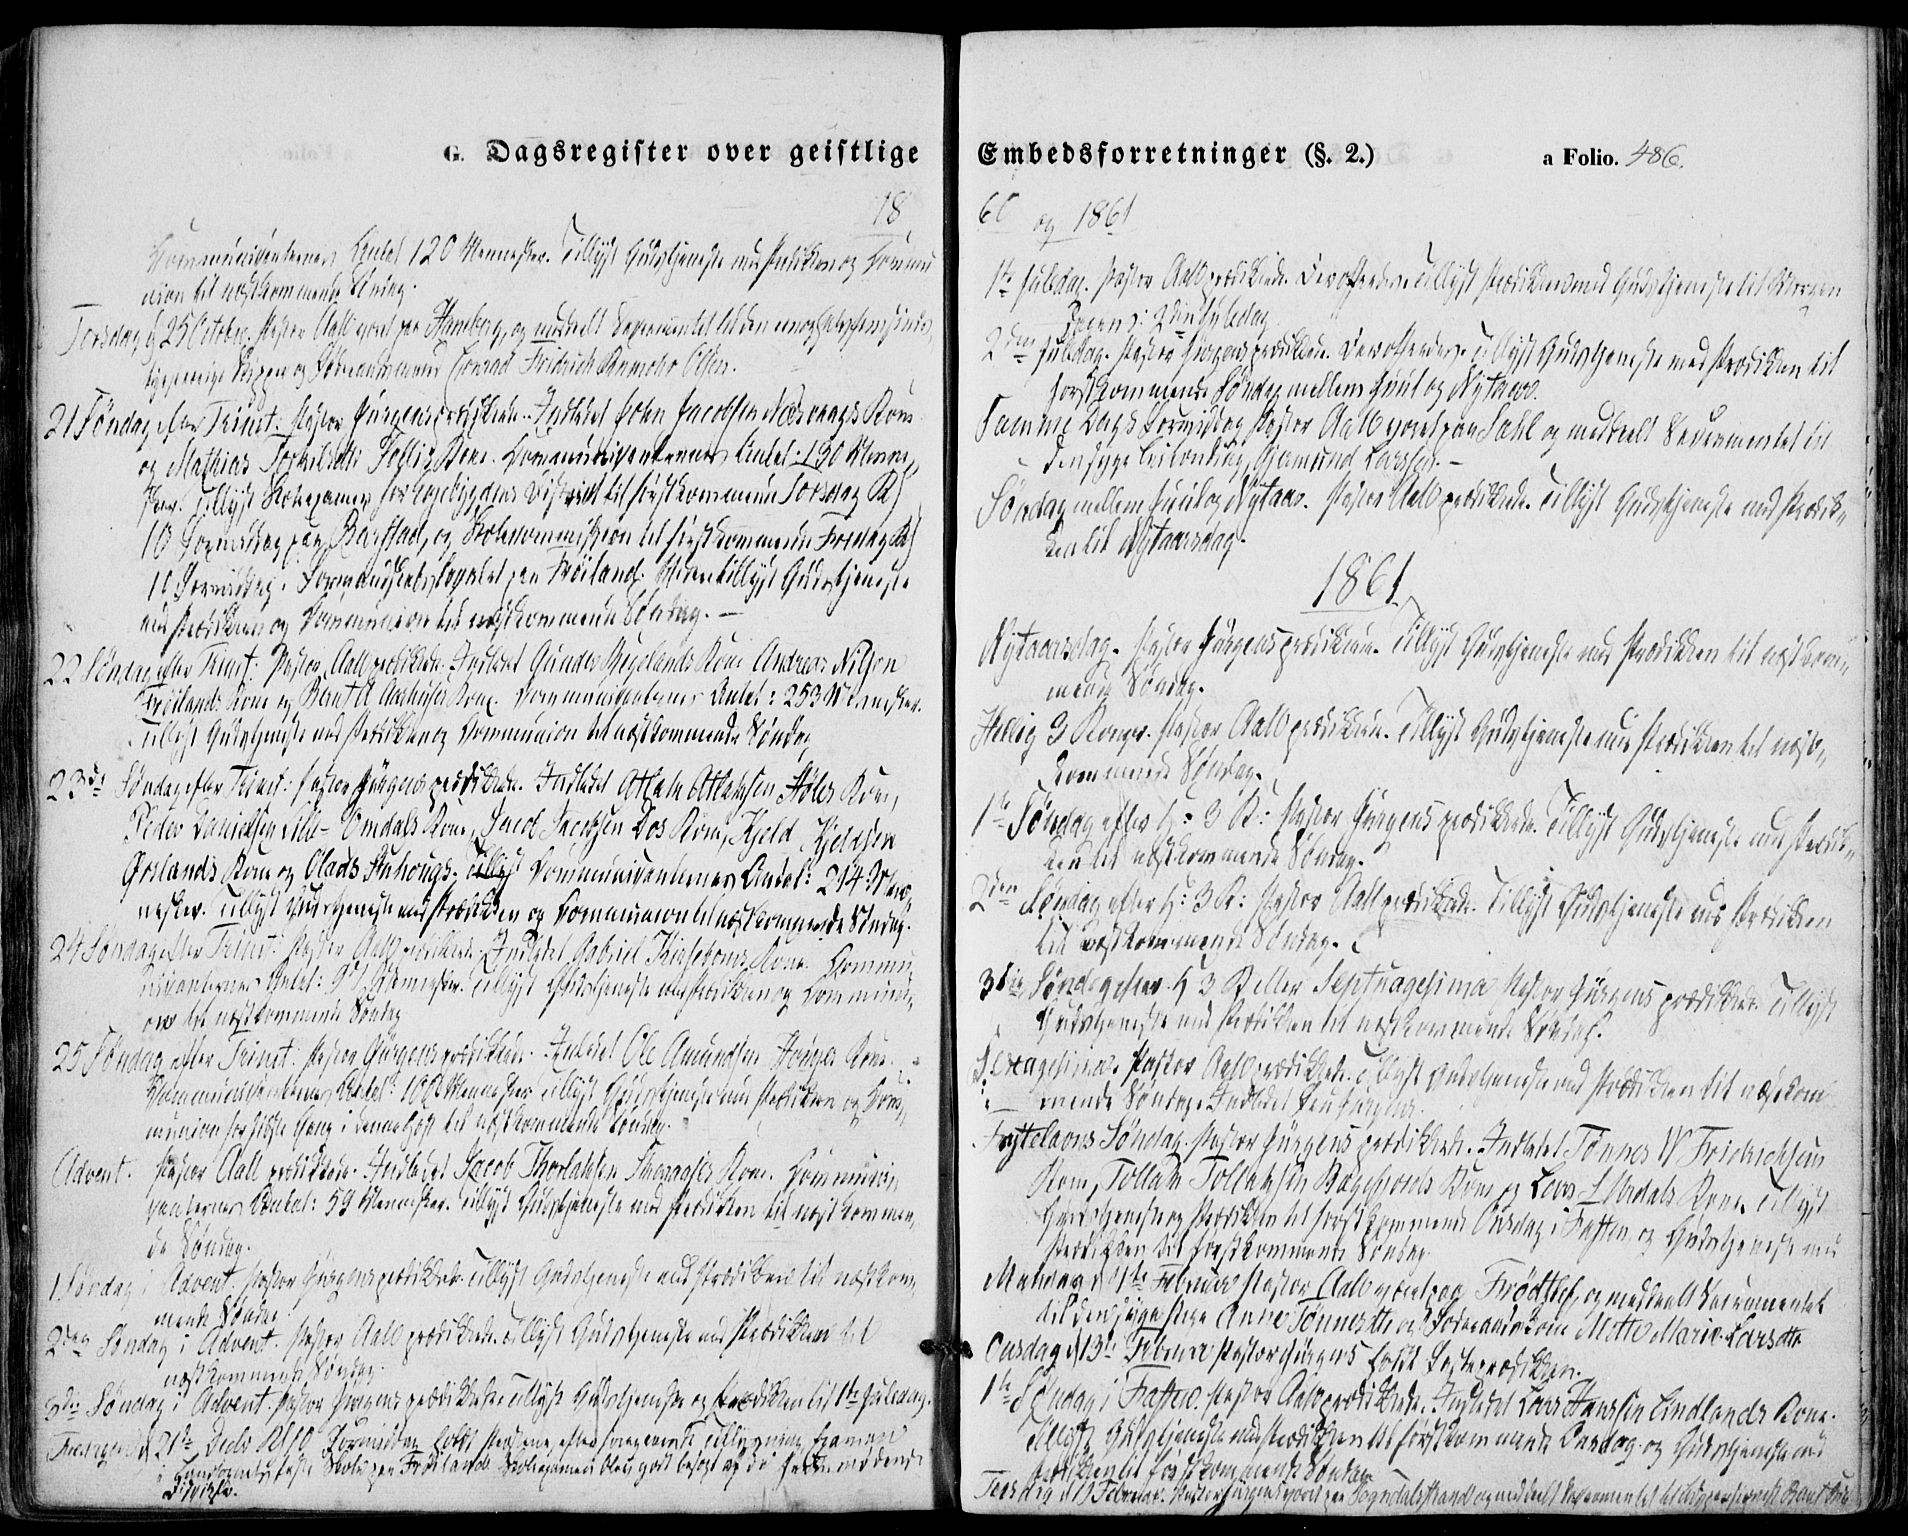 G. Dagsregister over geistlige
18
Communicanternes Antal 120 Mennesker. Tillyst Gudstjeneste med Prædiken og Commu
nion til næstkommende Søndag.
Torsdag d 25 October. Pastor Aall været paa Haneberg, og meddeelt Sacramentet til den
Skipper og Conrad Fridrich Olsen.
21 Søndag efter Trinit: Pastor Jürgens prædikede. Indledet John Jacobsen Kone
og Mathias Torkilsens Kone. Communicanternes Antal: 190 Menne,
sker. Tillyst District til førstkommende Torsdag Kl
10 Formiddag paa Barstad, og Skolecommission til førstkommende Fredag Kl
10 Formiddag i Formandskabslocalet paa Frøiland. Tillyst Gudstjeneste
med Prædiken og Communion til næstkommende Søndag.
22 Søndag efter Trinit: Pastor Aall prædikede. Indledet Gunder Kone Andreas Nilsen
Frøilands Kone og Bernt Kone. Communicanternes Antal: 253 Mennesker.
Tillyst Gudstjeneste med Prædiken og Communion til næstkommende Søndag
23de Søndag efter Trinit: Pastor Jürgens prædikede. Indledet Atlak Atlaksen Høles Kone,
Peder Danielsen Lille-Omdals Kone, Jacob Jacobsen Dos Kone, Kjeld Kjeldsen
Kone og Olads Tillyst Communicanternes Antal: 214 Men,
nesker. Tillyst Gudstjeneste med Prædiken og Communion til næstkommende Søndag.
24 Søndag efter Trinit: Pastor Aall prædikede. Indledet Gabriel Kone. Commu,
nicanternes Antal: 91 Mennesker. Tillyst Gudstjeneste med Prædiken og Communi,
on til næstkommende Søndag
25 Søndag efter Trinit: Pastor Jürgens prædikede. Indledet Ole Amundsen Kone.
Communicanternes Antal: Mennesker Tillyst Gudstjeneste med Prædiken og Com,
munion for sidste Gang i denne Høst til næstkommende Søndag.
Advent. Pastor Aall prædikede. Indledet Jacob Kone. Communi,
canternes Antal: 59 Mennesker. Tillyst Gudstjeneste med Prædiken til næstkommen,
de Søndag.
1 Søndag i Advent. Pastor Jürgens prædikede. Tillyst Gudstjeneste med Prædiken til næstkom,
mende Søndag.
2den Søndag i Advent. Pastor Aall prædikede. Tillyst Gudstjeneste med Prædiken til
næstkommende Søndag.
3die Søndag i Advent. Pastor Jürgens prædikede. Tillyst Gudstjeneste og Prædiken til 1ste Juledag.
d 21de Decbr Kl 10 Formiddag holdt Præsterne, efter foregaaende Tillysning, Examen
i faste Skole paa Frøiland.
Embedsforretninger (§. 2.)
a Folio. 486.
60 og 1861
1ste Juledag. Pastor Aall prædikede. Tillyst Prædiken med Gudstjeneste til Morgen
2den Juledag
2den Juledag. Pastor Jürgens prædikede. Tillyst Gudstjeneste med Prædiken til
førstkommende Søndag mellem Juul og Nytaar.
Samme Dags Formiddag Pastor Aall været paa Dahl og meddeelt Sacramentet til
den syge Gjermund Larsen.
Søndag mellem Juul og Nytaar. Pastor Aall prædikede. Tillyst Gudstjeneste med Prædi,
ken til Nytaarsdag.
1861.
Nytaarsdag. Pastor Jürgens prædikede. Tillyst Gudstjeneste med Prædiken til næstkom,
mende Søndag.
Hellig 3 Konger. Pastor Aall prædikede. Tillyst Gudstjeneste med Prædiken til næst,
kommende Søndag.
1ste Søndag efter H: 3 K: Pastor Jürgens prædikede. Tillyst Gudstjeneste med Prædi,
ken til næstkommende Søndag.
2den Søndag efter H: 3 K: Pastor Aall prædikede. Tillyst Gudstjeneste med Prædiken
til næstkommende Søndag.
3die Søndag efter H 3 K eller Septuagesima Pastor Jürgens prædikede. Tillyst
Gudstjeneste med Prædiken til næstkommende Søndag.
Sexagesima. Pastor Aall prædikede. Tillyst Gudstjeneste med Prædiken til næstkom
mende Søndag. Indledet Fru Jürgens.
Fastelavns Søndag. Pastor Jürgens prædikede. Indledet Tønnes W Fridrichsens
Kone, Tollak Tollaksen Kone og Lars Kone. Tillyst
Gudstjeneste og Prædiken til førstkommende Onsdag i Fasten og Gudstjeneste med
Prædiken til førstkommende Søndag
Mandag d 11te Februar Pastor Aall været paa og meddeelt Sacramentet
til den syge Pige Anne Tønnesdtr og Mette Marie Larsdtr
Onsdag d 13de Februar Pastor Jürgens holdt Fasteprædiken.
1ste Søndag i Fasten. Pastor Aall prædikede. Indledet Lars Hanssen Lindlands Kone.
Tillyst Gudstjeneste med Prædiken til førstkommende Onsdag og Gudstjeneste med
Prædiken til førstkommende Søndag
Februar. Pastor Jürgens været paa Sogndalsstrand og meddeelt Sacramentet til